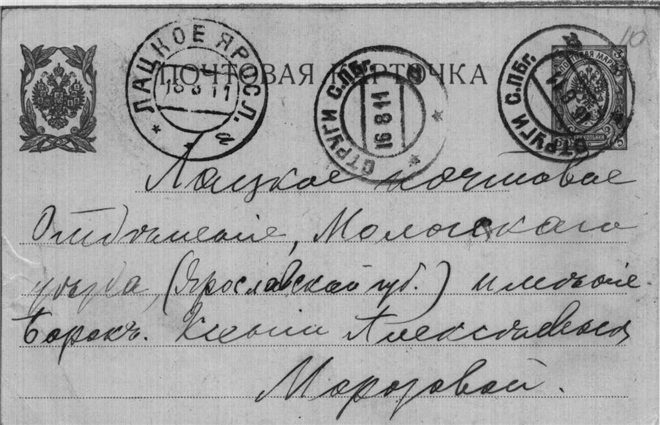 10
ПОЧТОВАЯ КАРТОЧКА
ЛАЦКОЕ ЯРОСЛ.
18 8 11
СТРУГИ С.ПБГ.
16 8 11
СТРУГИ С.ПБГ.
Лацкое почтовое
Отдѣленіе, Мологскаго
уѣзда (Ярославской губ.) имѣніе
Борокъ. Ксеніи Алексѣевнѣ
Морозовой.